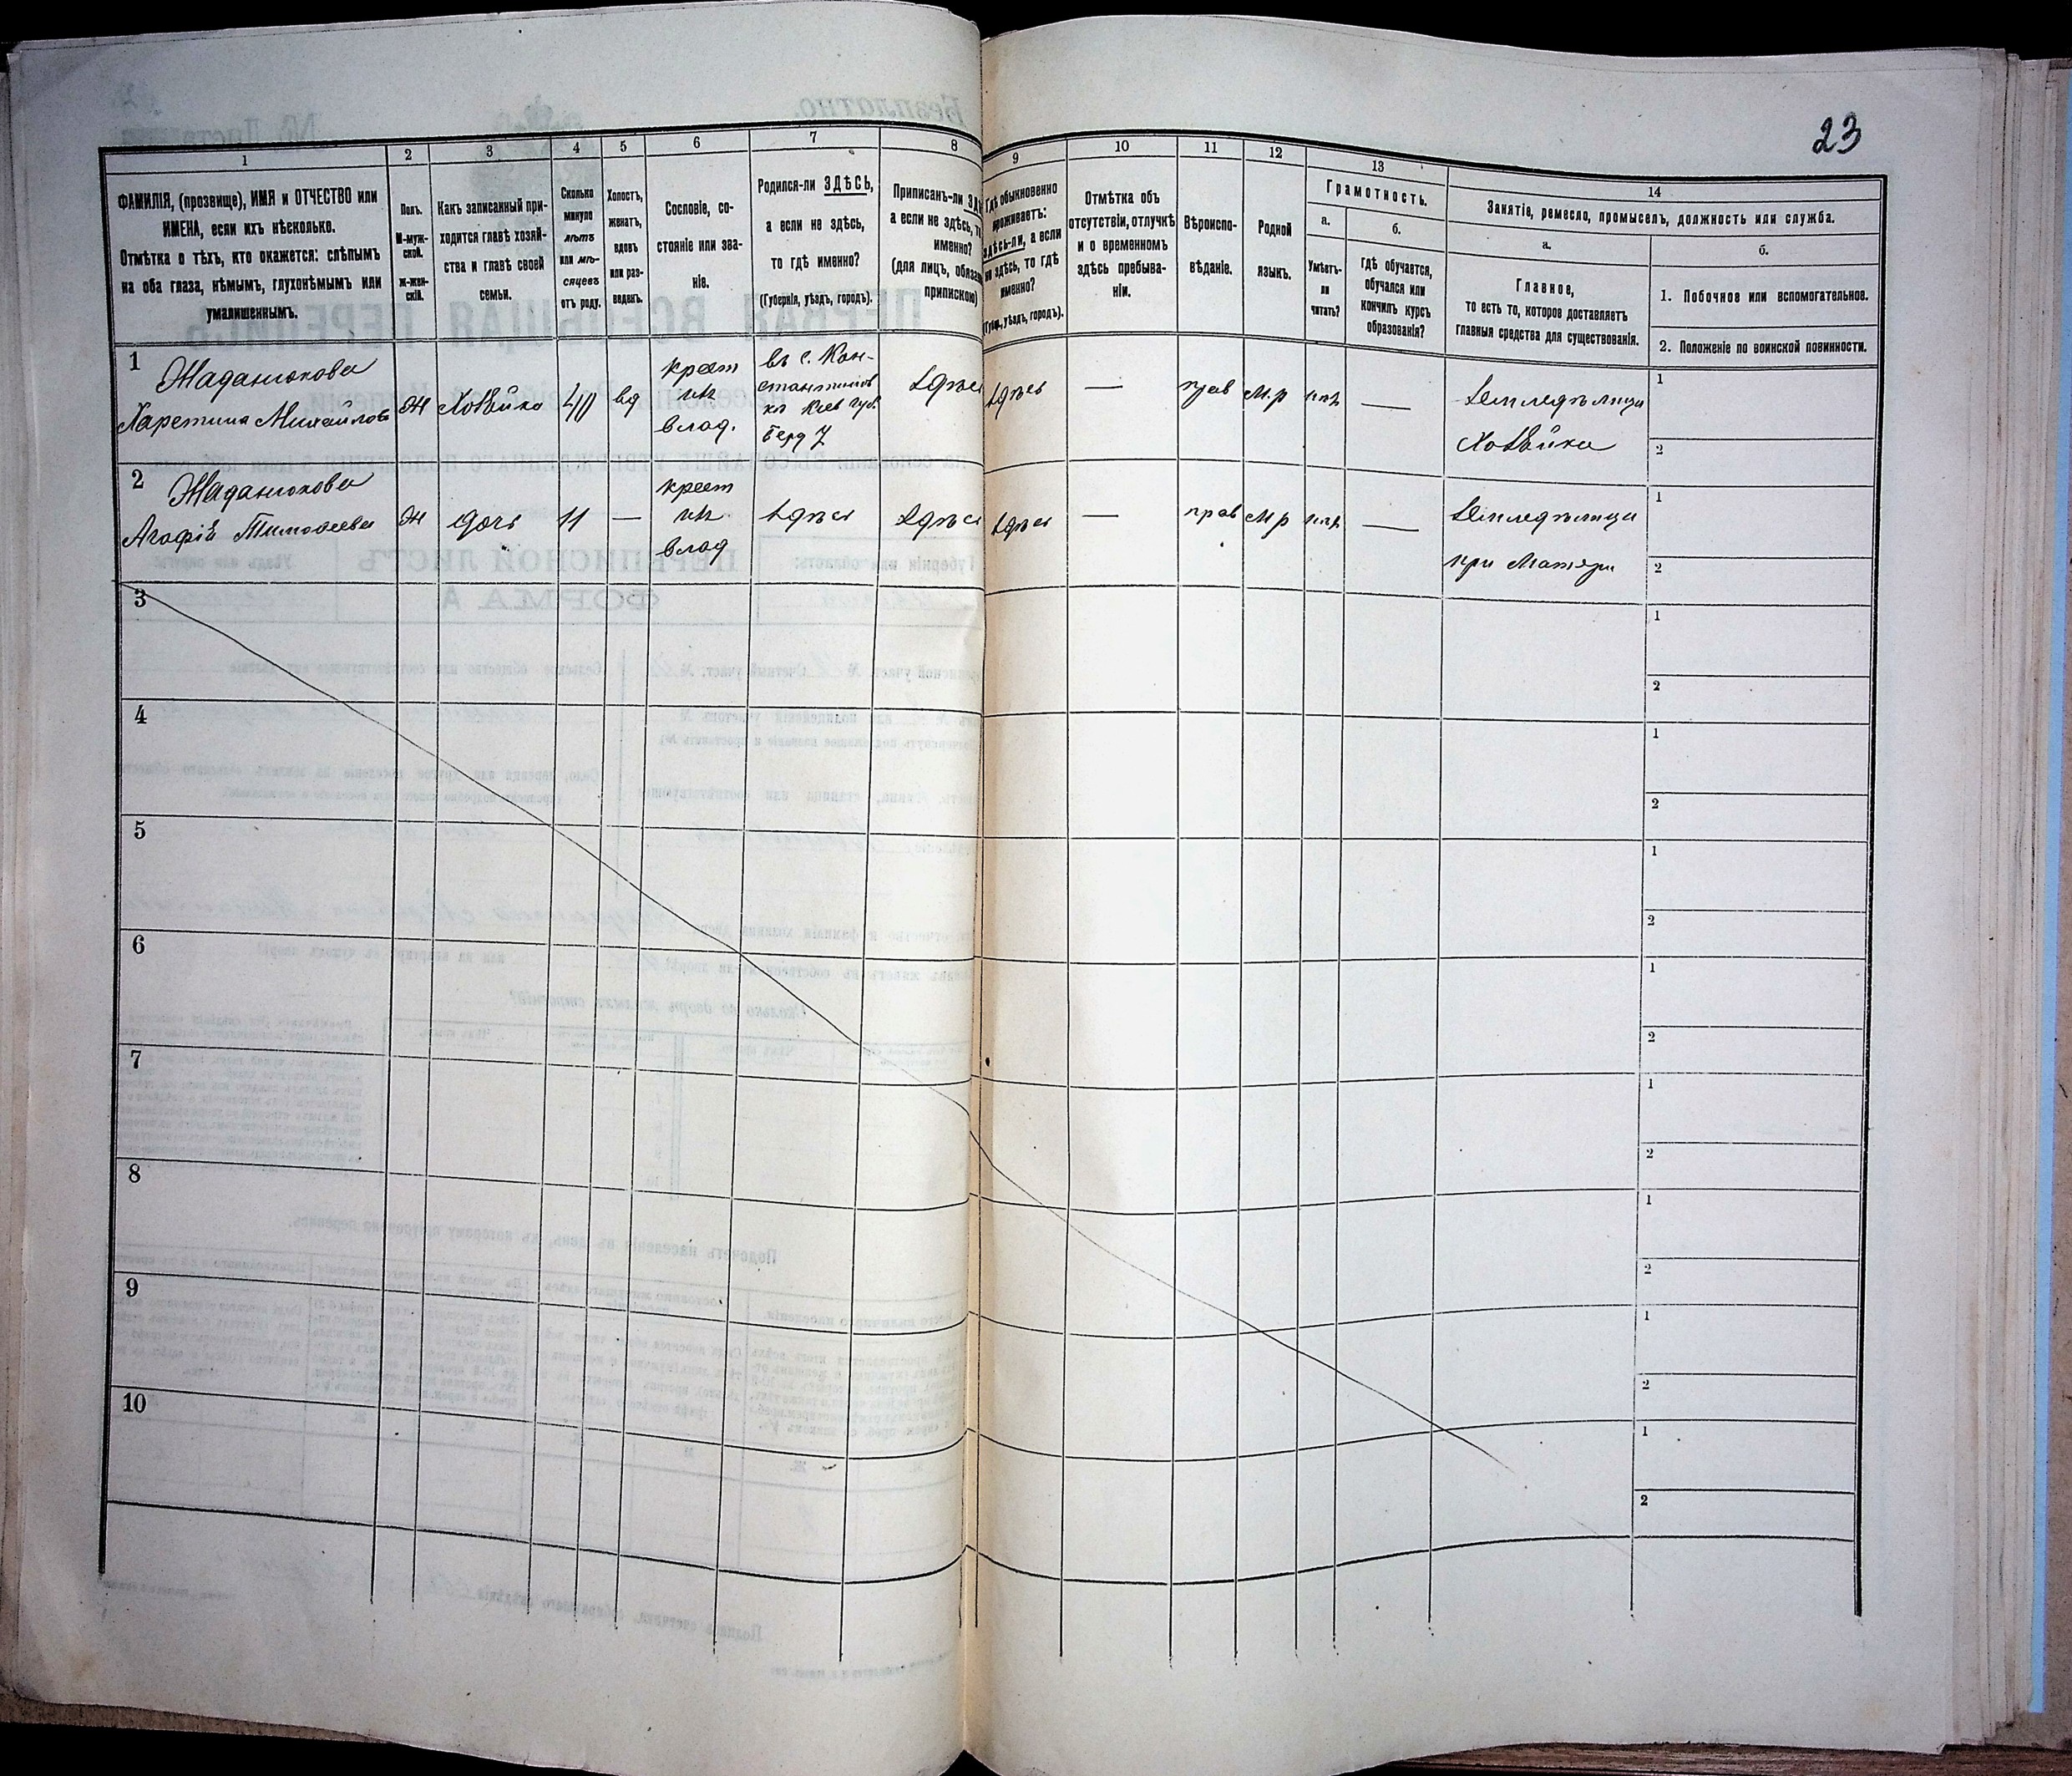 23
1
2
3
4
5
6
7
8
9
10
11
12
13
14
ФАМИЛІЯ, (прозвище), ИМЯ и ОТЧЕСТВО или
ИМЕНА, если ихъ нѣсколько.
Отмѣтка о тѣхъ, кто окажется: слѣпымъ
на оба глаза, нѣмымъ, глухонѣмымъ или
умалишеннымъ.
Полъ.
М-муж-
ской.
Ж-жен-
скій.
Какъ записанный при-
ходится главѣ хозяй-
ства и главѣ своей
семьи.
Сколько
минуло
лѣтъ
или мѣ-
сяцевъ
отъ роду.
Холостъ,
женатъ,
вдовъ
или раз-
веденъ.
Сословіе, со-
стояніе или зва-
ніе.
Родился-ли ЗДѢСЬ,
а если не здѣсь,
то гдѣ именно?
(Губернія, уѣздъ, городъ).
Приписанъ-ли
а если не здѣсь,
именно?
(для лицъ,
припискою)
Гдѣ обыкновенно
проживаетъ:
здѣсь-ли, а если
не здѣсь, то гдѣ
именно?
(Губ., уѣздъ, городъ).
Отмѣтка объ
отсутствіи, отлучкѣ
и о временномъ
здѣсь пребыва-
ніи.
Вѣроиспо-
вѣданіе.
Родной
языкъ.
Грамотность.
а.
Умѣетъ-
ли
читать?
б.
Гдѣ обучается,
обучался или
кончилъ курсъ
образованія?
Занятіе, ремесло, промыселъ, должность или служба.
а.
Главное,
то есть то, которое доставляетъ
главныя средства для существованія.
б.
1. Побочное или вспомогательное.
2. Положеніе по воинской повинности.
1
Жаданюкова
Харетина Михайлов
Ж
Хозяйка
40
вд
крест
изъ
влад.
въ с. Кон-
стантинов
ка Кіев губ.
Берд У
здѣсь
здѣсь
—
прав
м.р
нѣт
—
Земледѣлица
Хозяйка
1
2
2
Жаданюкова
Агафія Тимофеева
Ж
дочь
11
—
крест
изъ
влад
здѣсь
здѣсь
здѣсь
—
прав
м р
нѣт
—
Земледѣлица
при Матери
1
2
3
1
2
4
1
2
5
1
2
6
1
2
7
1
2
8
1
2
9
1
2
10
1
2